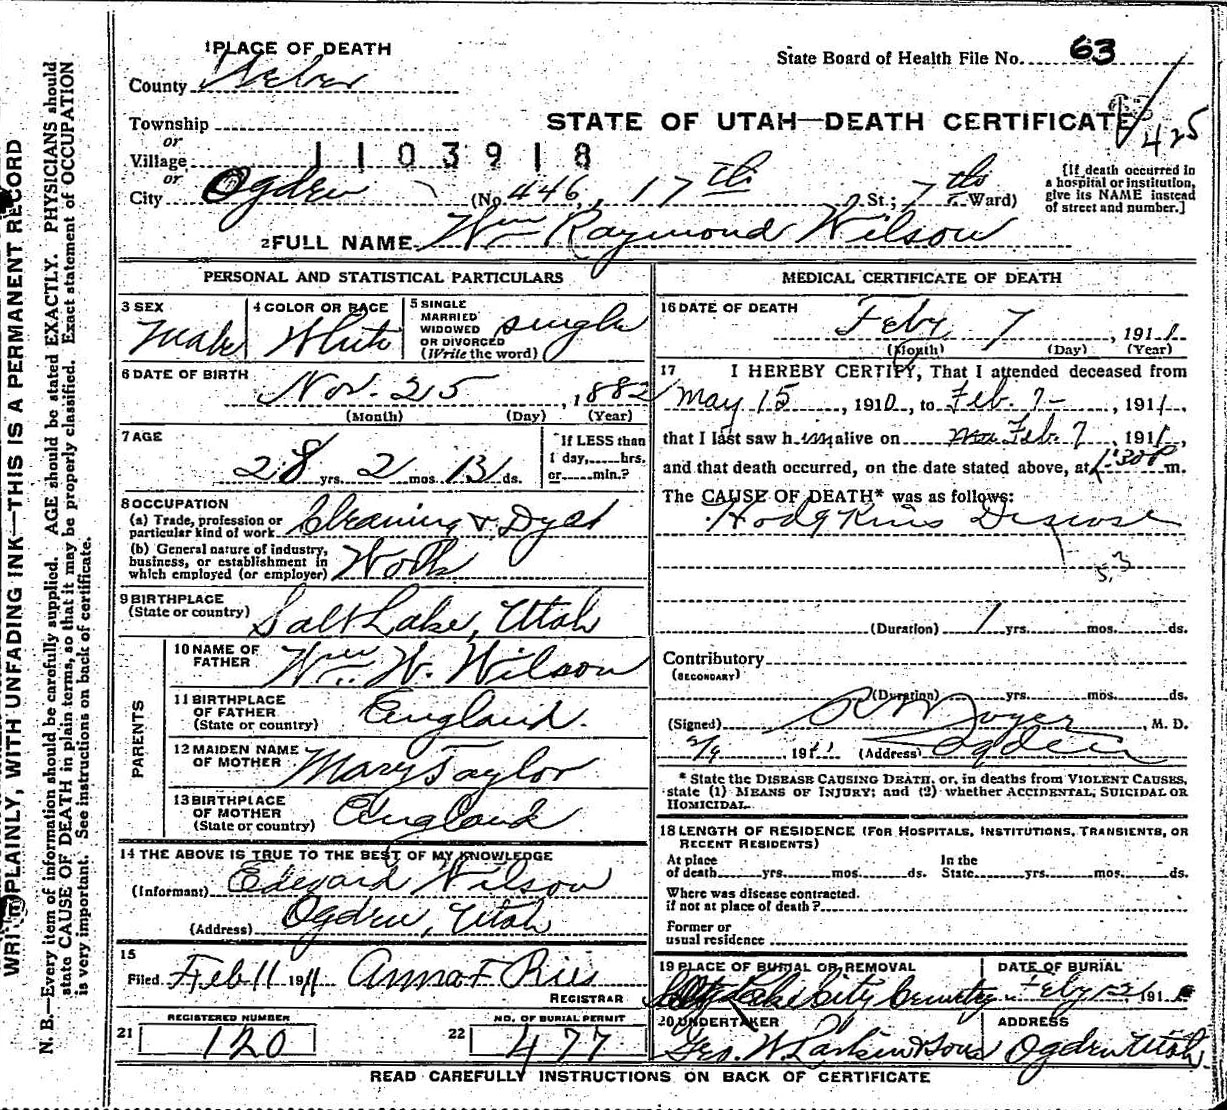 1 PLACE OF DEATH
County Weber
State Board of Health File No. 63
Township
or
Village 1103918
or
City Ogden (No. 446, 17th St.; 7th Ward)
STATE OF UTAH—DEATH CERTIFICATE
425
[If death occurred in
a hospital or institution,
give its NAME instead
of street and number.]
2 FULL NAME Wm Raymond Wilson
PERSONAL AND STATISTICAL PARTICULARS
3 SEX
Male
4 COLOR OR RACE
White
5 SINGLE
MARRIED
WIDOWED
OR DIVORCED
(Write the word)
single
6 DATE OF BIRTH
Nov. 25, 1882
(Month) (Day) (Year)
7 AGE
28 yrs. 2 mos. 13 ds.
If LESS than
1 day, hrs.
or min.?
8 OCCUPATION
(a) Trade, profession or
particular kind of work Cleaning & Dye
(b) General nature of industry,
business, or establishment in
which employed (or employer) Works
9 BIRTHPLACE
(State or country) Salt Lake, Utah
PARENTS
10 NAME OF
FATHER Wm. W. Wilson
11 BIRTHPLACE
OF FATHER
(State or country) England.
12 MAIDEN NAME
OF MOTHER Mary Taylor
13 BIRTHPLACE
OF MOTHER
(State or country) England
14 THE ABOVE IS TRUE TO THE BEST OF MY KNOWLEDGE
(Informant) Edward Wilson
(Address) Ogden, Utah
15
Filed Feb 11 1911 Anna F Ries
REGISTRAR
21 REGISTERED NUMBER
120
22 NO. OF BURIAL PERMIT
477
MEDICAL CERTIFICATE OF DEATH
16 DATE OF DEATH
Feby 7, 1911
(Month) (Day) (Year)
17 I HEREBY CERTIFY, That I attended deceased from
May 15, 1910, to Feb. 7, 1911,
that I last saw him alive on Feb. 7, 1911,
and that death occurred, on the date stated above, at 1:30 P m.
The CAUSE OF DEATH* was as follows:
Hodgkins Disease
53
(Duration) 1 yrs. mos. ds.
Contributory
(SECONDARY)
(Duration) yrs. mos. ds.
(Signed) M. D.
2/9 1911 (Address) Ogden
* State the DISEASE CAUSING DEATH, or, in deaths from VIOLENT CAUSES,
state (1) MEANS OF INJURY; and (2) whether ACCIDENTAL, SUICIDAL OR
HOMICIDAL.
18 LENGTH OF RESIDENCE (FOR HOSPITALS, INSTITUTIONS, TRANSIENTS, OR
RECENT RESIDENTS)
At place
of death yrs. mos. ds.
In the
State yrs. mos. ds.
Where was disease contracted.
if not at place of death?
Former or
usual residence
19 PLACE OF BURIAL OR REMOVAL
Salt Lake City Cemetery
DATE OF BURIAL
Feby 12, 191
20 UNDERTAKER
Geo. W. Larkin & Sons
ADDRESS
Ogden Utah
READ CAREFULLY INSTRUCTIONS ON BACK OF CERTIFICATE
WRITE PLAINLY, WITH UNFADING INK—THIS IS A PERMANENT RECORD
N. B.—Every item of information should be carefully supplied. AGE should be stated EXACTLY. PHYSICIANS should
state CAUSE OF DEATH in plain terms, so that it may be properly classified. Exact statement of OCCUPATION
is very important. See instructions on back of certificate.